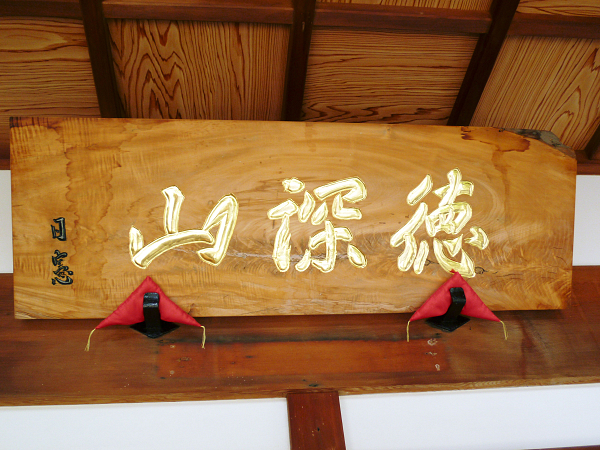 徳深山
日窓